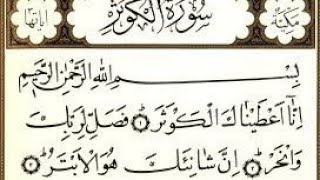 مكية سورة الكوثر اياتها
بِسْمِ اللهِ الرَّحْمٰنِ الرَّحِيْمِ
اِنَّا اَعْطَيْنَاكَ الْكَوْثَرَ ۝١ فَصَلِّ لِرَبِّكَ
وَانْحَرْ ۝٢ اِنَّ شَانِئَكَ هُوَ الْاَبْتَرُ ۝٣